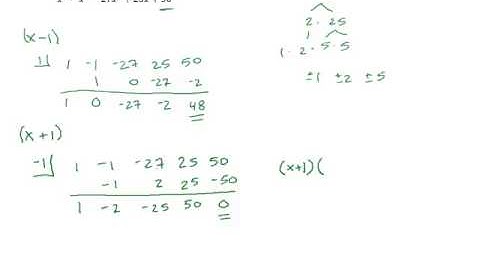 2 · 25
(x-1)
1 · 2 · 5 · 5
1| 1 -1 -27 25 50
±1 ±2 ±5
1 0 -27 -2
1 0 -27 -2 48
(x+1)
-1| 1 -1 -27 25 50
(x+1)(
-1 2 25 -50
1 -2 -25 50 0